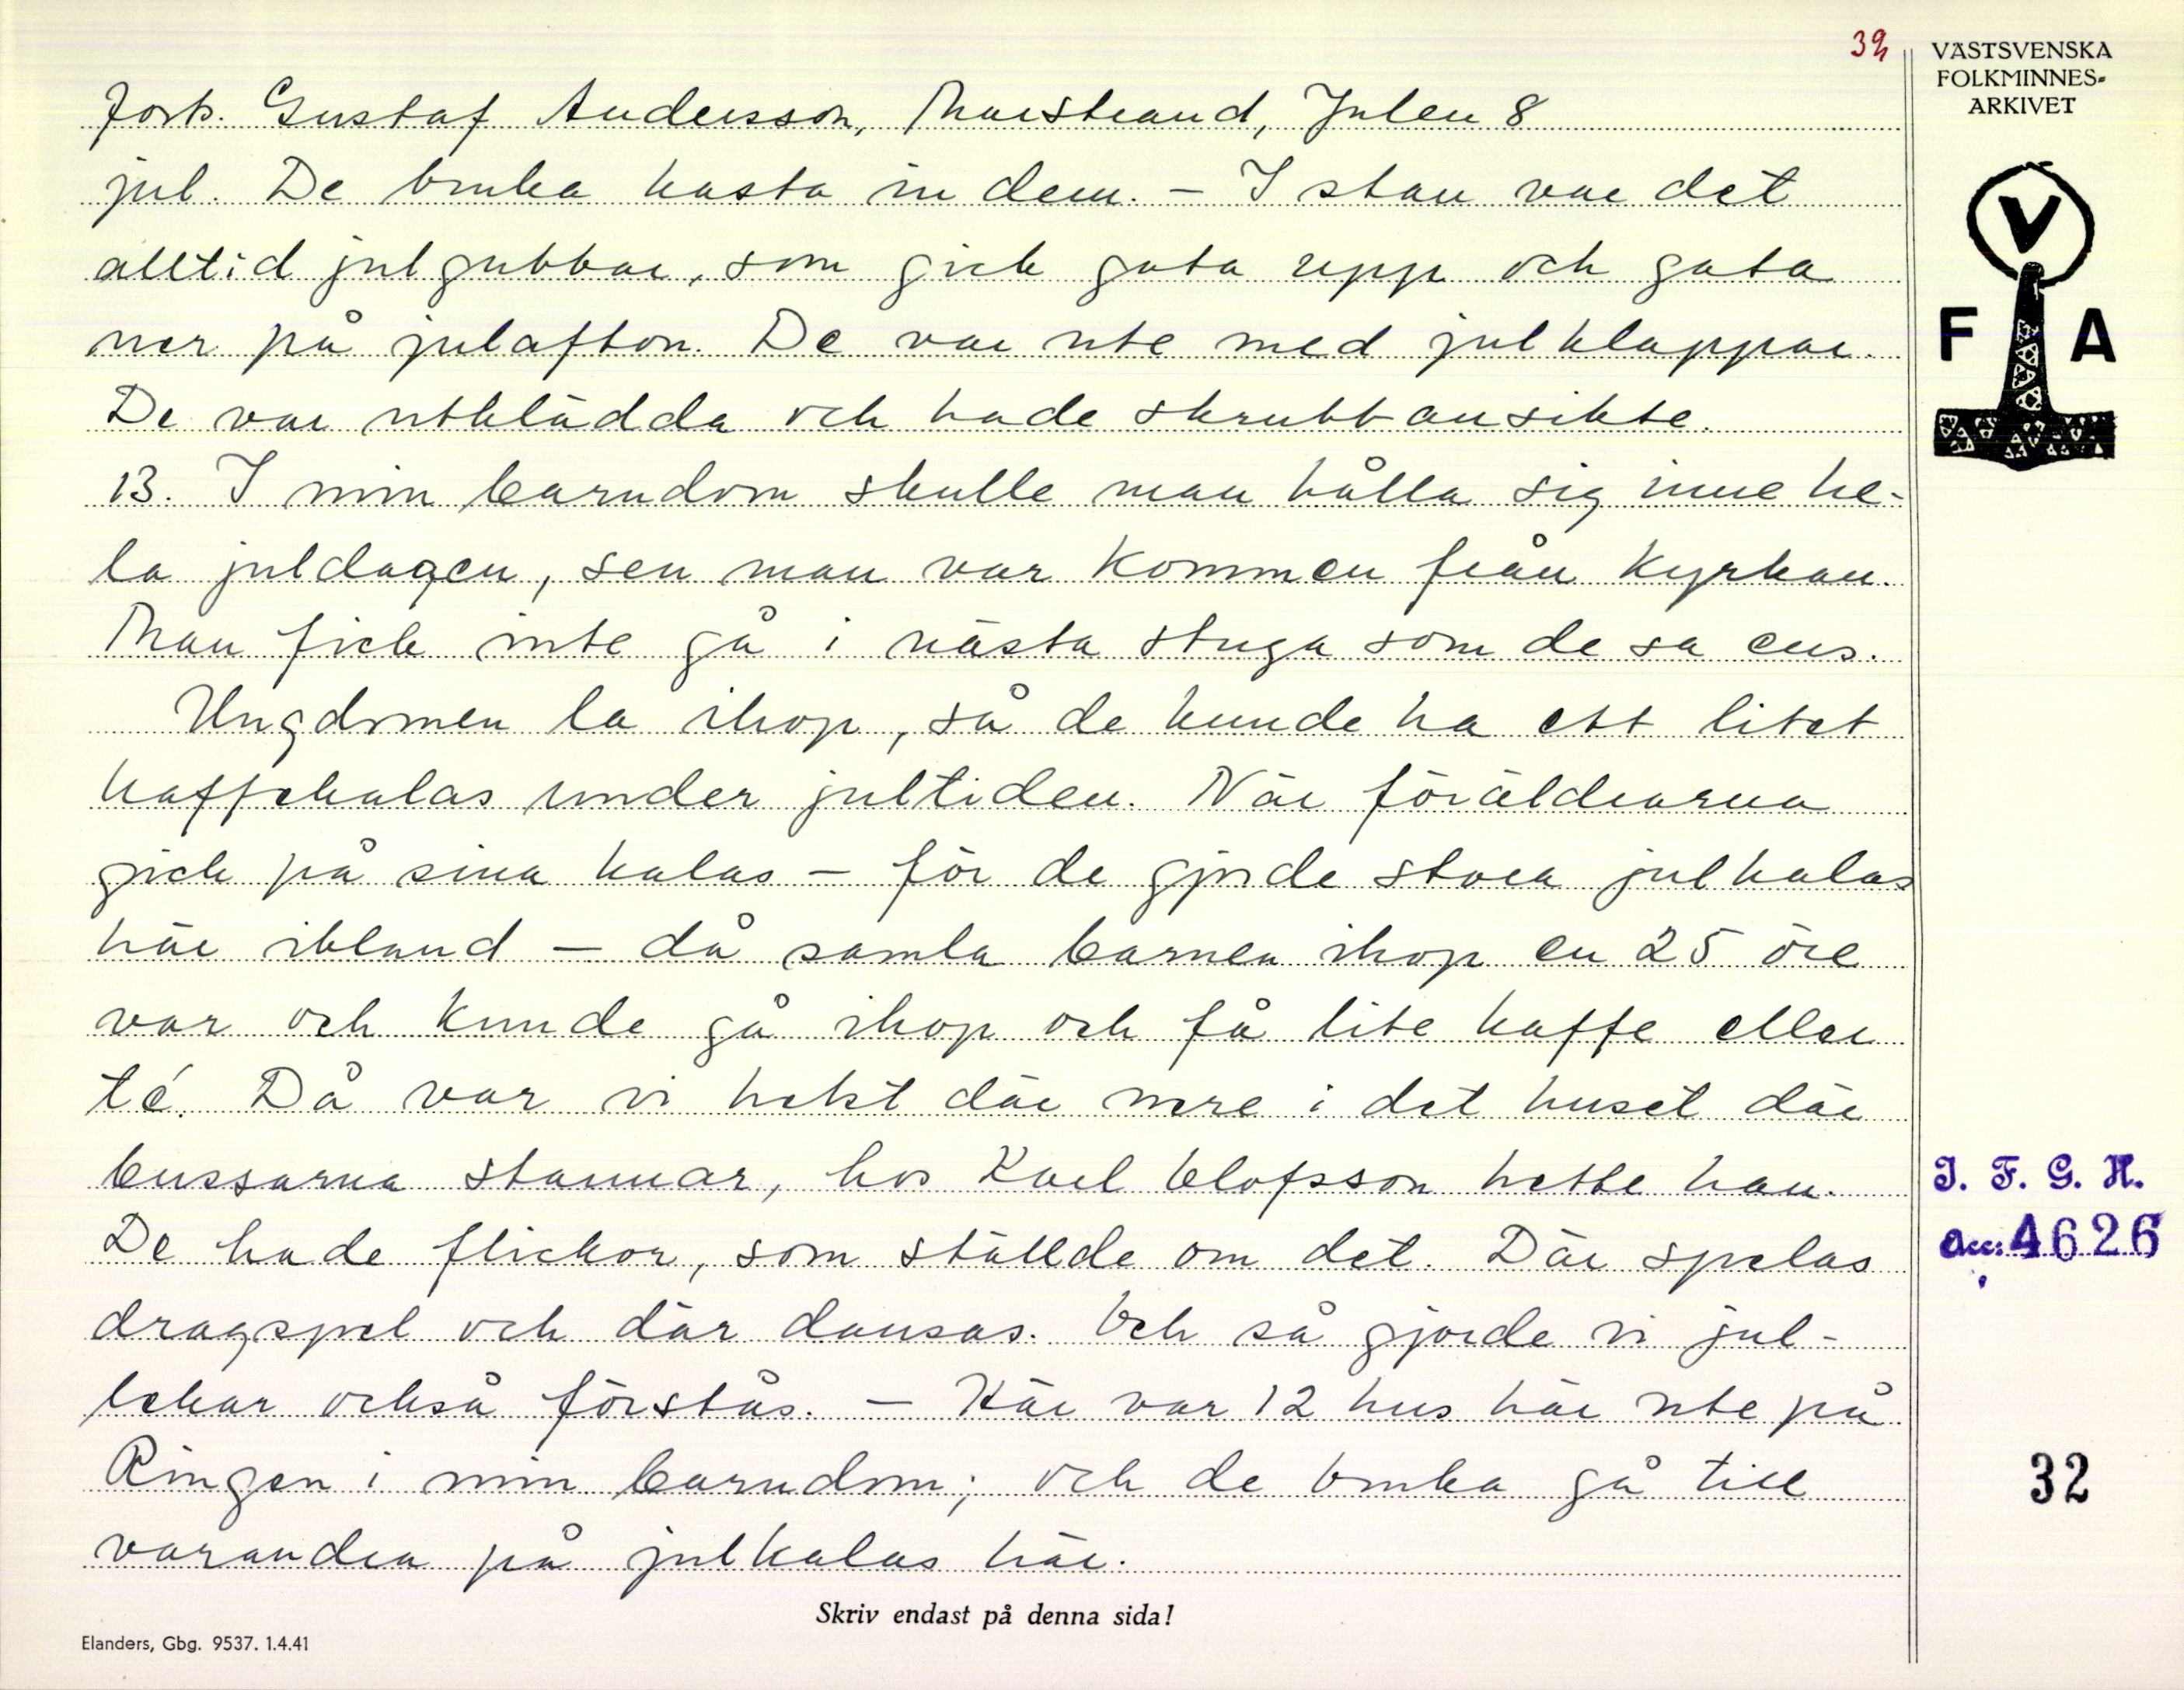 32
VÄSTSVENSKA
FOLKMINNES-
ARKIVET
Forts. Gustaf Andersson, Marstrand, Julen 8
jul. De bruka kasta in dem. – I stan var det
alltid julgubbar, som gick gata upp och gata
ner på julafton. De var ute med julklappar.
De var utklädda och hade skrubbansikte.
13. I min barndom skulle man hålla sig inne he-
la juldagen, sen man var kommen från kyrkan.
Man fick inte gå i nästa stuga som de sa ens.
Ungdomen la ihop, så de kunde ha ett litet
kaffekalas under jultiden. När föräldrarna
gick på sina kalas – för de gjorde stora julkalas
här ibland – då samla barnen ihop en 25 öre
var och kunde gå ihop och få lite kaffe eller
té. Då var vi helst där nere i det huset där
bussarna stannar, hos Karl Olofsson hette han.
De hade flickor, som ställde om det. Där spelas
dragspel och där dansas. Och så gjorde vi jul-
lekar också förstås. – Här var 12 hus här ute på
Ringen i min barndom; och de bruka gå till
varandra på julkalas här.
V
F A
I. F. G. H.
Acc: 4626
32
Skriv endast på denna sida!
Elanders, Gbg. 9537. 1.4.41